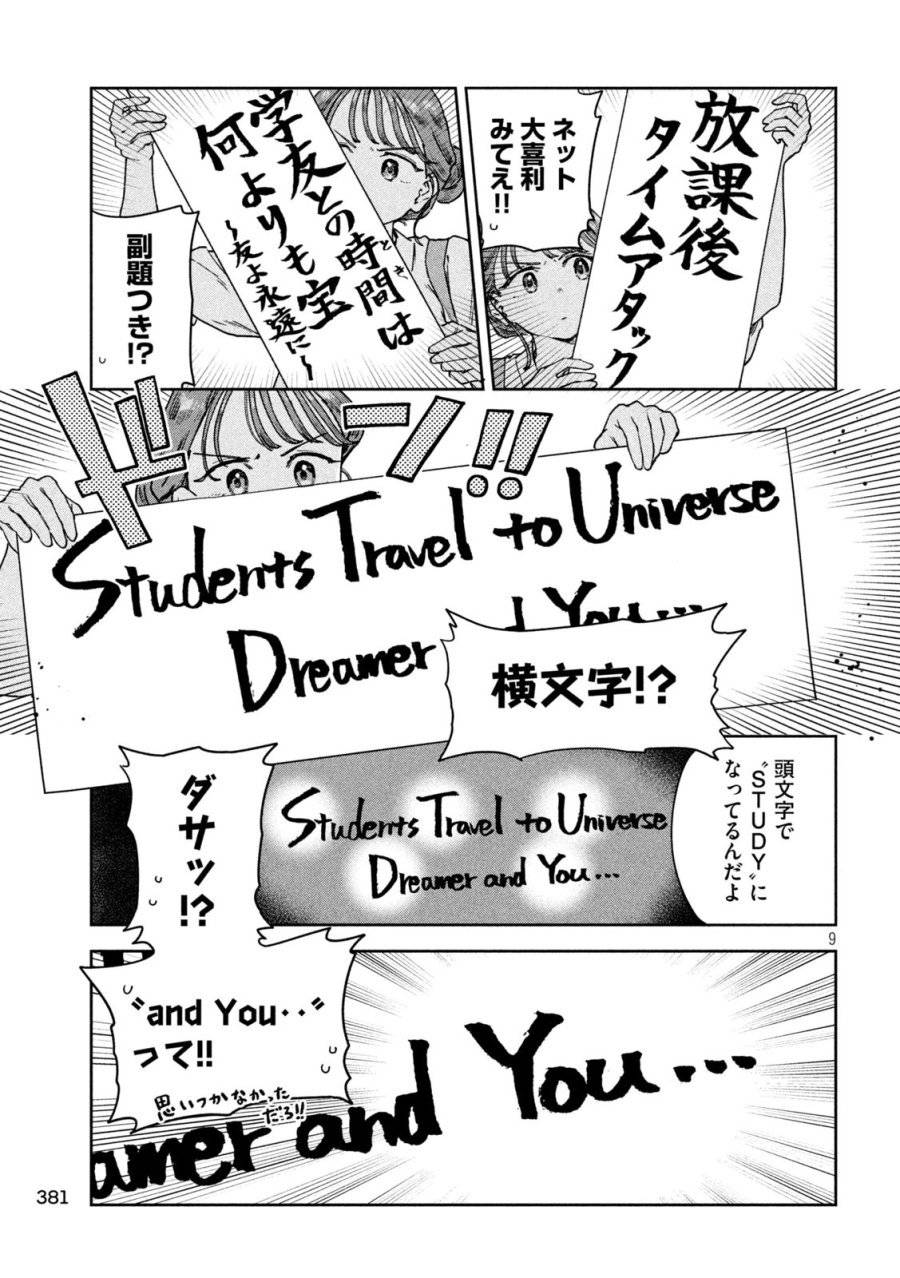 放課後
タイムアタック
ネット
大喜利
みてえ!!
学友との時間は
とき
何よりも宝
～友よ永遠に～
副題つき!?
ドン!!
Students Travel to Universe
Dreamer and You...
横文字!?
頭文字で
〝STUDY〟に
なってるんだよ
Students Travel to Universe
Dreamer and You...
ダサッ!?
9
〝and You‥〟
って!!
思いつかなかった
だろ!!
amer and You...
381